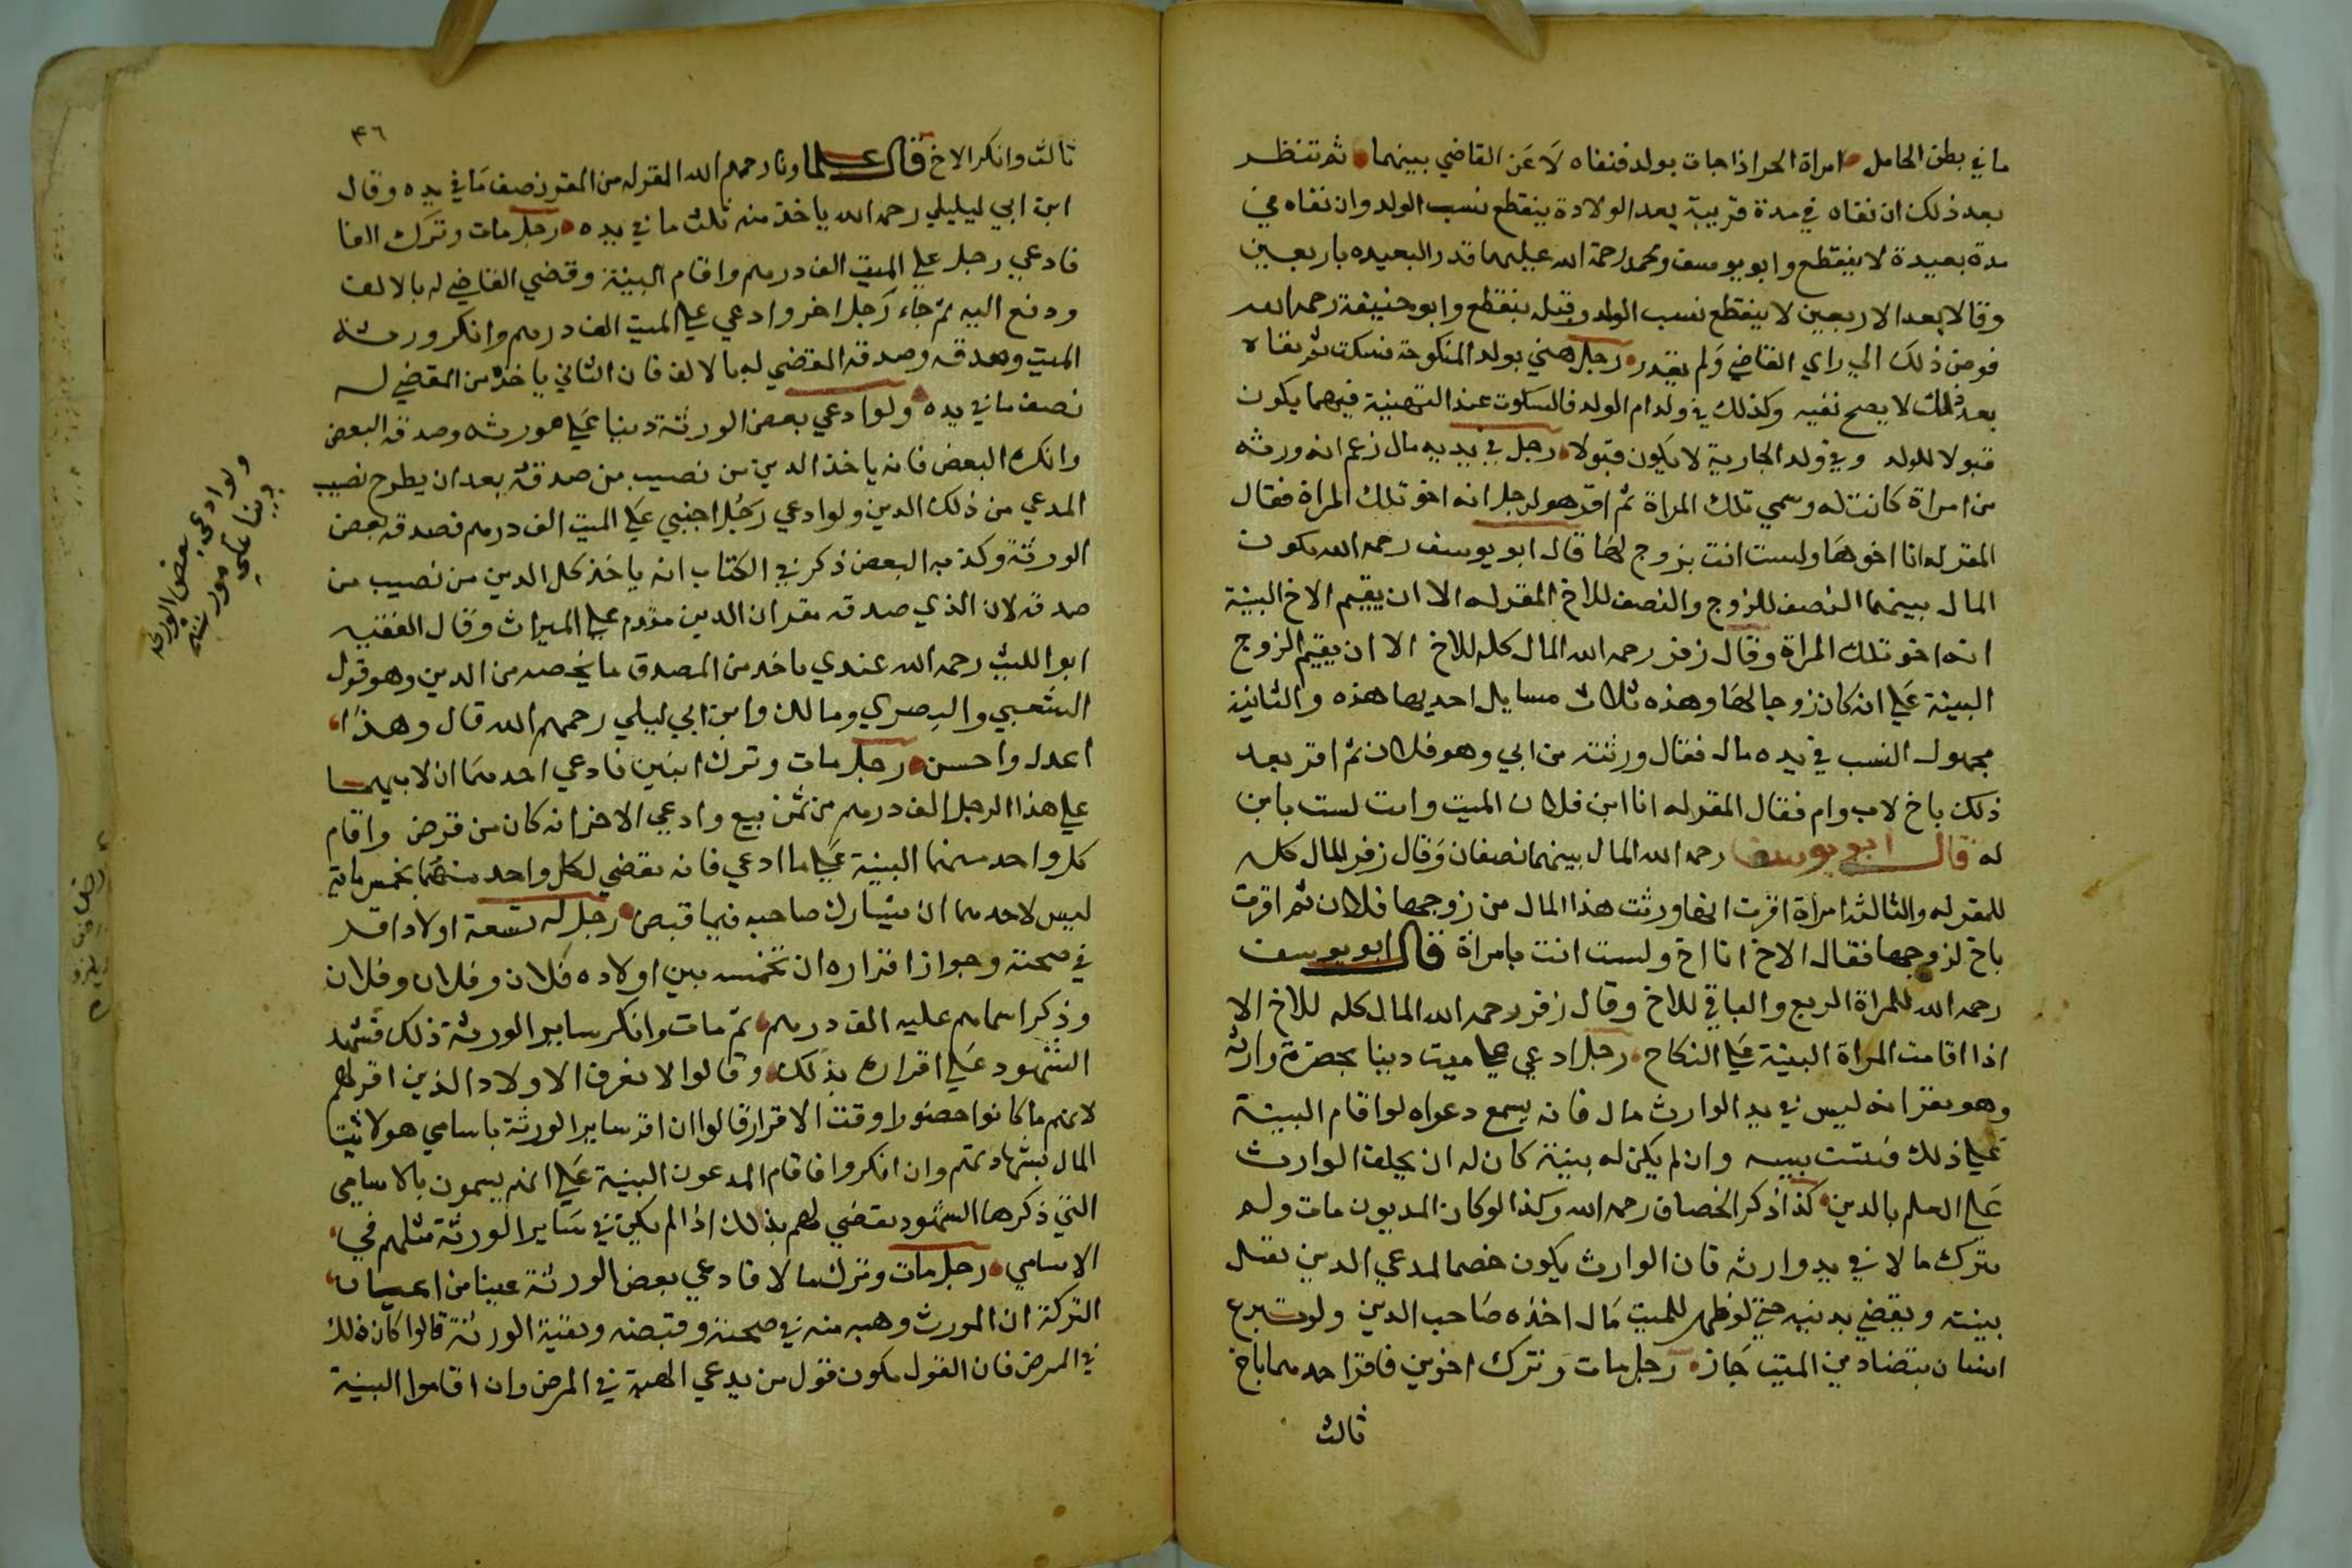 ما في بطن الحامل امراة الحر اذا جات بولد فنفاه لاعن القاضي بينهما ثم تنظر
بعد ذلك ان نفاه في مدة قريبة بعد الولادة ينقطع نسب الولد وان نفاه في
مدة بعيدة لا ينقطع وابو يوسف ومحمد رحمة الله عليهما قدر البعيده باربعين
وقالا بعد الاربعين لا ينقطع نسب الولد وقبله ينقطع وابو حنيفة رحمه الله
فوض ذلك الي راي القاضي ولم يقدر رجل هني بولد المنكوحة فسكت ثم نفاه
بعد ذلك لا يصح نفيه وكذلك في ولد ام الولد فالسكوت عند التهنية فيهما يكون
قبولا للولد وفي ولد الجارية لا يكون قبولا رجل في يديه مال زعم انه ورثه
من امراة كانت له وسمي تلك المراة ثم اقر هو لرجل انه اخو تلك المراة فقال
المقر له انا اخوها ولست انت بزوج لها قال ابو يوسف رحمه الله يكون
المال بينهما النصف للزوج والنصف للاخ المقر له الا ان يقيم الاخ البينة
انه اخو تلك المراة وقال زفر رحمه الله المال كله للاخ الا ان يقيم الزوج
البينة علي انه كان زوجا لها وهذه ثلاث مسايل احديها هذه والثانية
مجهول النسب في يده مال فقال ورثته من ابي وهو فلان ثم اقر بعد
ذلك باخ لاب وام فقال المقر له انا ابن فلان الميت وانت لست بابن
له قال ابو يوسف رحمه الله المال بينهما نصفان وقال زفر المال كله
للمقر له والثالثة امراة اقرت انها ورثت هذا المال من زوجها فلان ثم اقرت
باخ لزوجها فقال الاخ انا اخ ولست انت بامراة قال ابو يوسف
رحمه الله للمراة الربع والباقي للاخ وقال زفر رحمه الله المال كله للاخ الا
اذا اقامت المراة البينة علي النكاح رجل ادعي علي ميت دينا بحضرة وارثه
وهو يقر انه ليس في يد الوارث مال فانه يسمع دعواه لو اقام البينة
علي ذلك وان لم يكن له بينة كان له ان يحلف الوارث
علي العلم بالدين كذا ذكر الخصاف رحمه الله وكذا لو كان المديون مات ولم
يترك مالا في يد وارثه فان الوارث يكون خصما لمدعي الدين تقبل
بينته ويقضي بدينه حتي لو ظهر للميت مال اخذه صاحب الدين ولو تبرع
انسان بقضا دين الميت جاز رجل مات وترك اخوين فاقر احدهما باخ
ثالث
٤٦
ثالث وانكر الاخ قال علماونا رحمهم الله المقر له من المقر نصف ما في يده وقال
ابن ابي ليليلي رحمه الله ياخذ منه ثلث ما في يده رجل مات وترك الفا
فادعي رجل علي الميت الف درهم واقام البينة وقضي القاضي له بالالف
ودفع اليه ثم جاء رجل اخر وادعي علي الميت الف درهم وانكر ورثة
الميت وصدقه المقضي له بالالف فان الثاني ياخذ من المقضي له
نصف ما في يده ولو ادعي بعض الورثة دينا علي مورثه وصدقه البعض
وانكره البعض فانه ياخذ الدين من نصيب من صدقه بعد ان يطرح نصيب
المدعي من ذلك الدين ولو ادعي رجل اجنبي علي الميت الف درهم فصدقه بعض
الورثة وكذبه البعض ذكر في الكتاب انه ياخذ كل الدين من نصيب من
صدقه لان الذي صدقه مقر ان الدين مقدم علي الميراث وقال الفقيه
ابو الليث رحمه الله عندي ياخذ من المصدق ما يخصه من الدين وهو قول
الشعبي والبصري ومالك وابن ابي ليلي رحمهم الله قال وهذا
اعدل واحسن رجل مات وترك ابنين فادعي احدهما ان لابيهما
علي هذا الرجل الف درهم من ثمن بيع وادعي الاخر انه كان من قرض واقام
كل واحد منهما البينة علي ما ادعي فانه يقضي لكل واحد منهما بخمس ماية
ليس لاحدهما ان يشارك صاحبه فيما قبض رجل له تسعة اولاد اقر
في صحته وجواز اقراره ان لخمسة بين اولاده فلان وفلان وفلان
وذكر اسمامهم عليه الف درهم ثم مات وانكر ساير الورثة ذلك فشهد
الشهود علي اقراره بذلك وقالوا لا نعرف الاولاد الذين اقر لهم
لانهم ما كانوا حضورا وقت الاقرار قالوا ان اقر ساير الورثة باسامي هولا ثبتا
المال بشهادتهم وان انكروا فاقام المدعون البينة علي انهم يسمون بالاسامي
التي ذكرها الشهود يقضي لهم بذلك اذا لم يكن في ساير الورثة مثلهم في
الاسامي رجل مات وترك مالا فادعي بعض الورثة عينا من اعيان
التركة ان المورث وهبه منه في صحته وقبضه وبقية الورثة قالوا كان ذلك
في المرض فان القول يكون قول من يدعي الهبة في المرض وان اقاموا البينة
ولو ادعي بعض الورثة
دينا علي مورثه